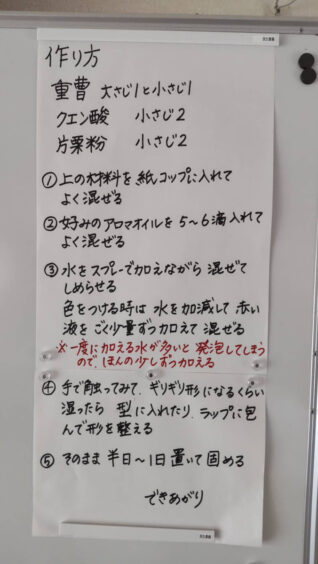 作り方
重曹 大さじ1と小さじ1
クエン酸 小さじ2
片栗粉 小さじ2
①上の材料を紙コップに入れて
よく混ぜる
②好みのアロマオイルを5〜6滴入れて
よく混ぜる
③水をスプレーで加えながら混ぜて
しめらせる
色をつける時は水を加減して赤い
液をごく少量ずつ加えて混ぜる
※一度に加える水が多いと発泡してしまう
ので、ほんの少しずつ加える
④手で触ってみて、ギリギリ形になるくらい
湿ったら型に入れたり、ラップに包
んで形を整える
⑤そのまま半日〜1日置いて固める
できあがり